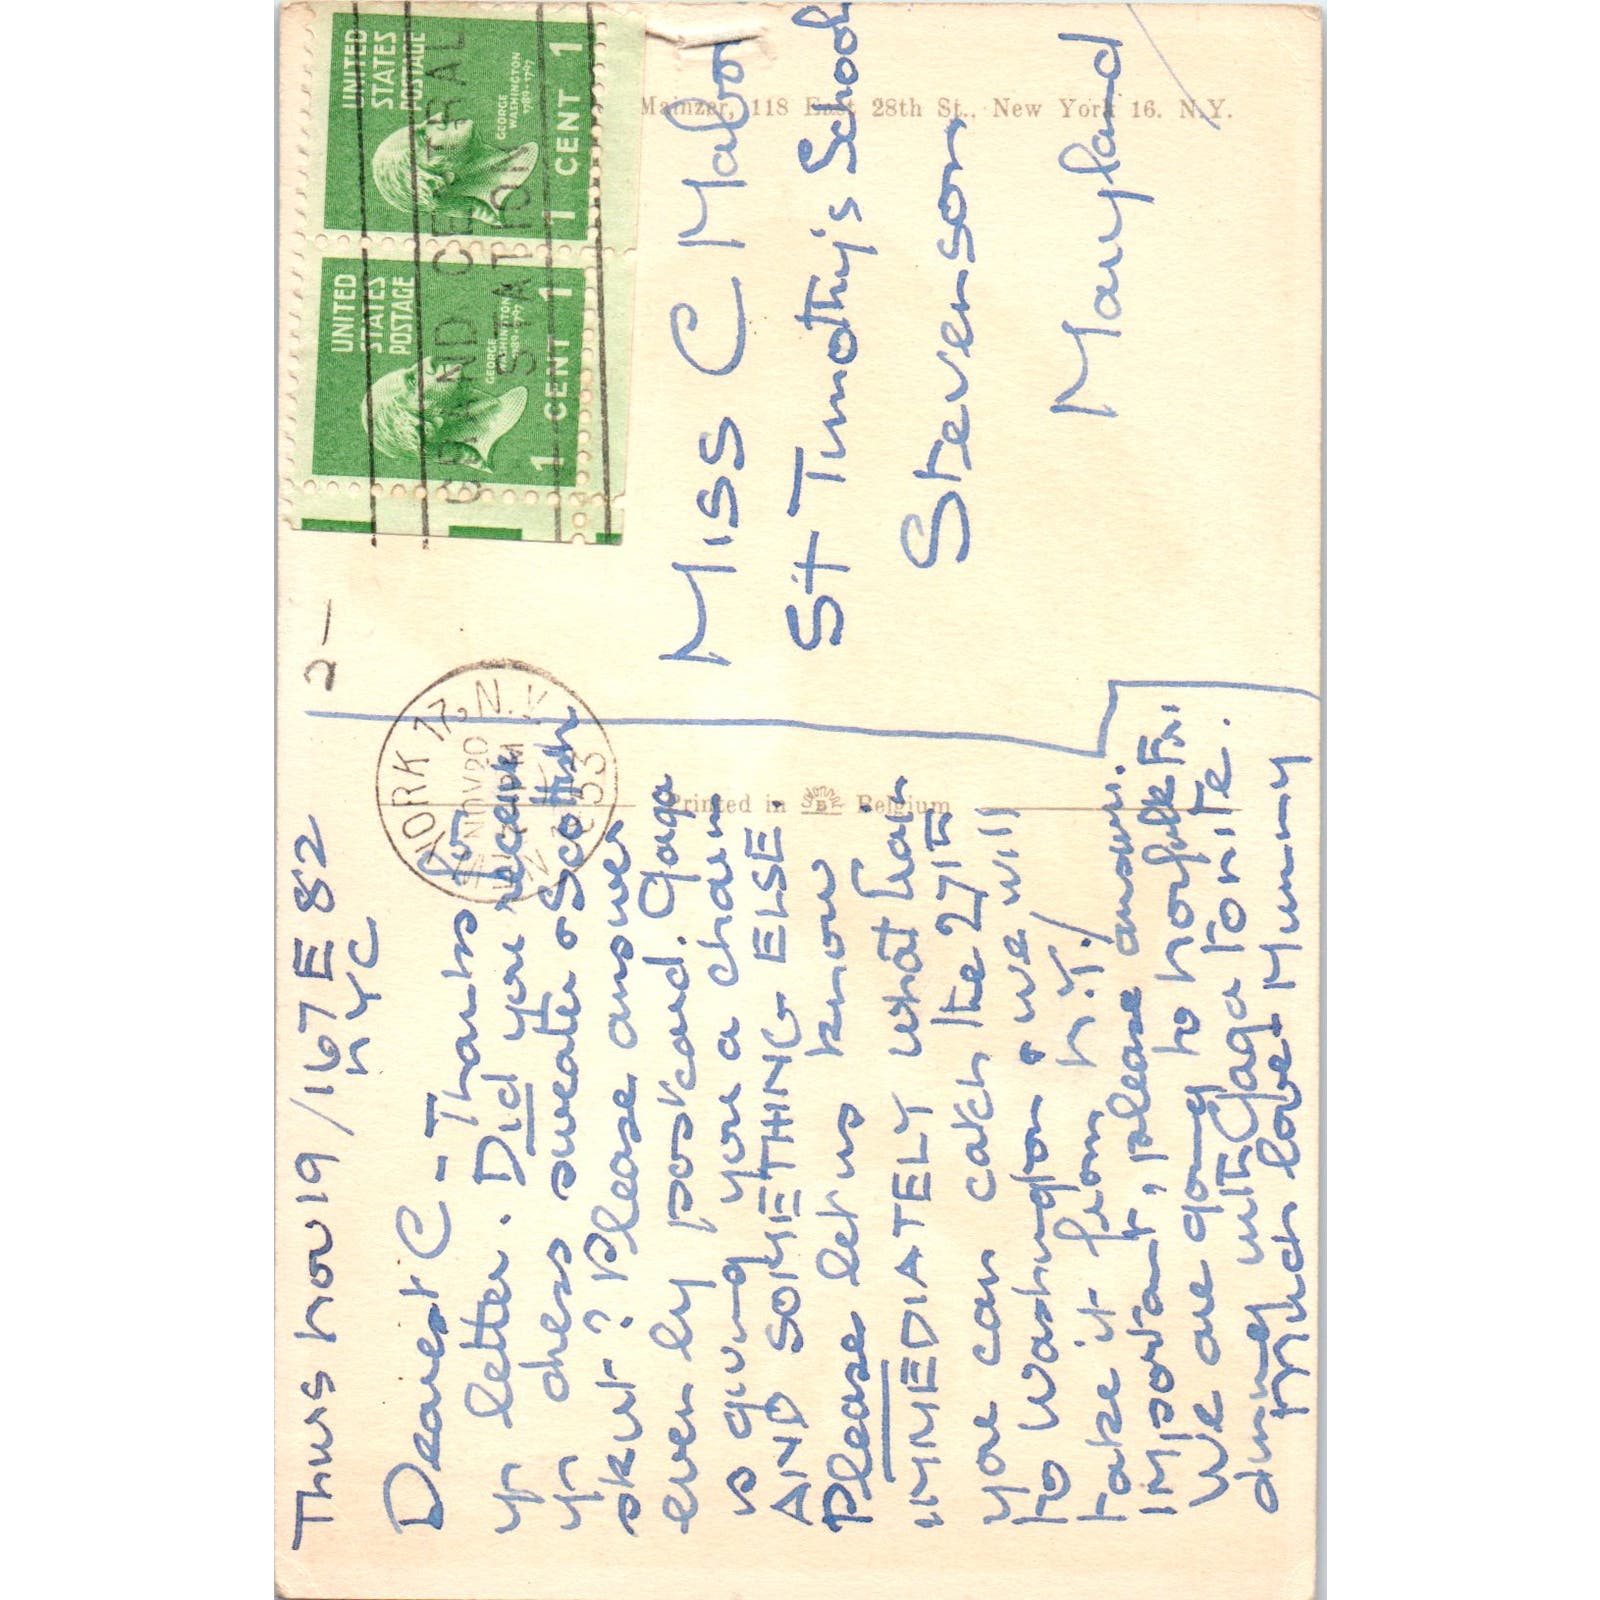 Thurs Nov 19 / 167 E 82
NYC
Dearest C - Thanks for
yr letter. Did you receive
yr dress sweater & Scottish
skirt? Please answer
even by postcard. Gaga
is giving you a charm
AND SOMETHING ELSE.
Please let us know
IMMEDIATELY what train
you can catch the 27th
to Washington & we will
take it from N.Y./
Important, please answer.
We are going to Norfolk Fri
dining with Gaga tonite.
Much love Mummy
2-
YORK 17, N.Y.
NOV 20
PM
1953
GRAND CENTRAL
STATION
UNITED
STATES
POSTAGE
GEORGE
WASHINGTON
1789-1797
1 CENT 1
UNITED
STATES
POSTAGE
GEORGE
WASHINGTON
1789-1797
1 CENT 1
Miss C Mabon
St Timothy's School
Stevenson
Maryland
Mainzer, 118 East 28th St., New York 16. N.Y.
Printed in Belgium